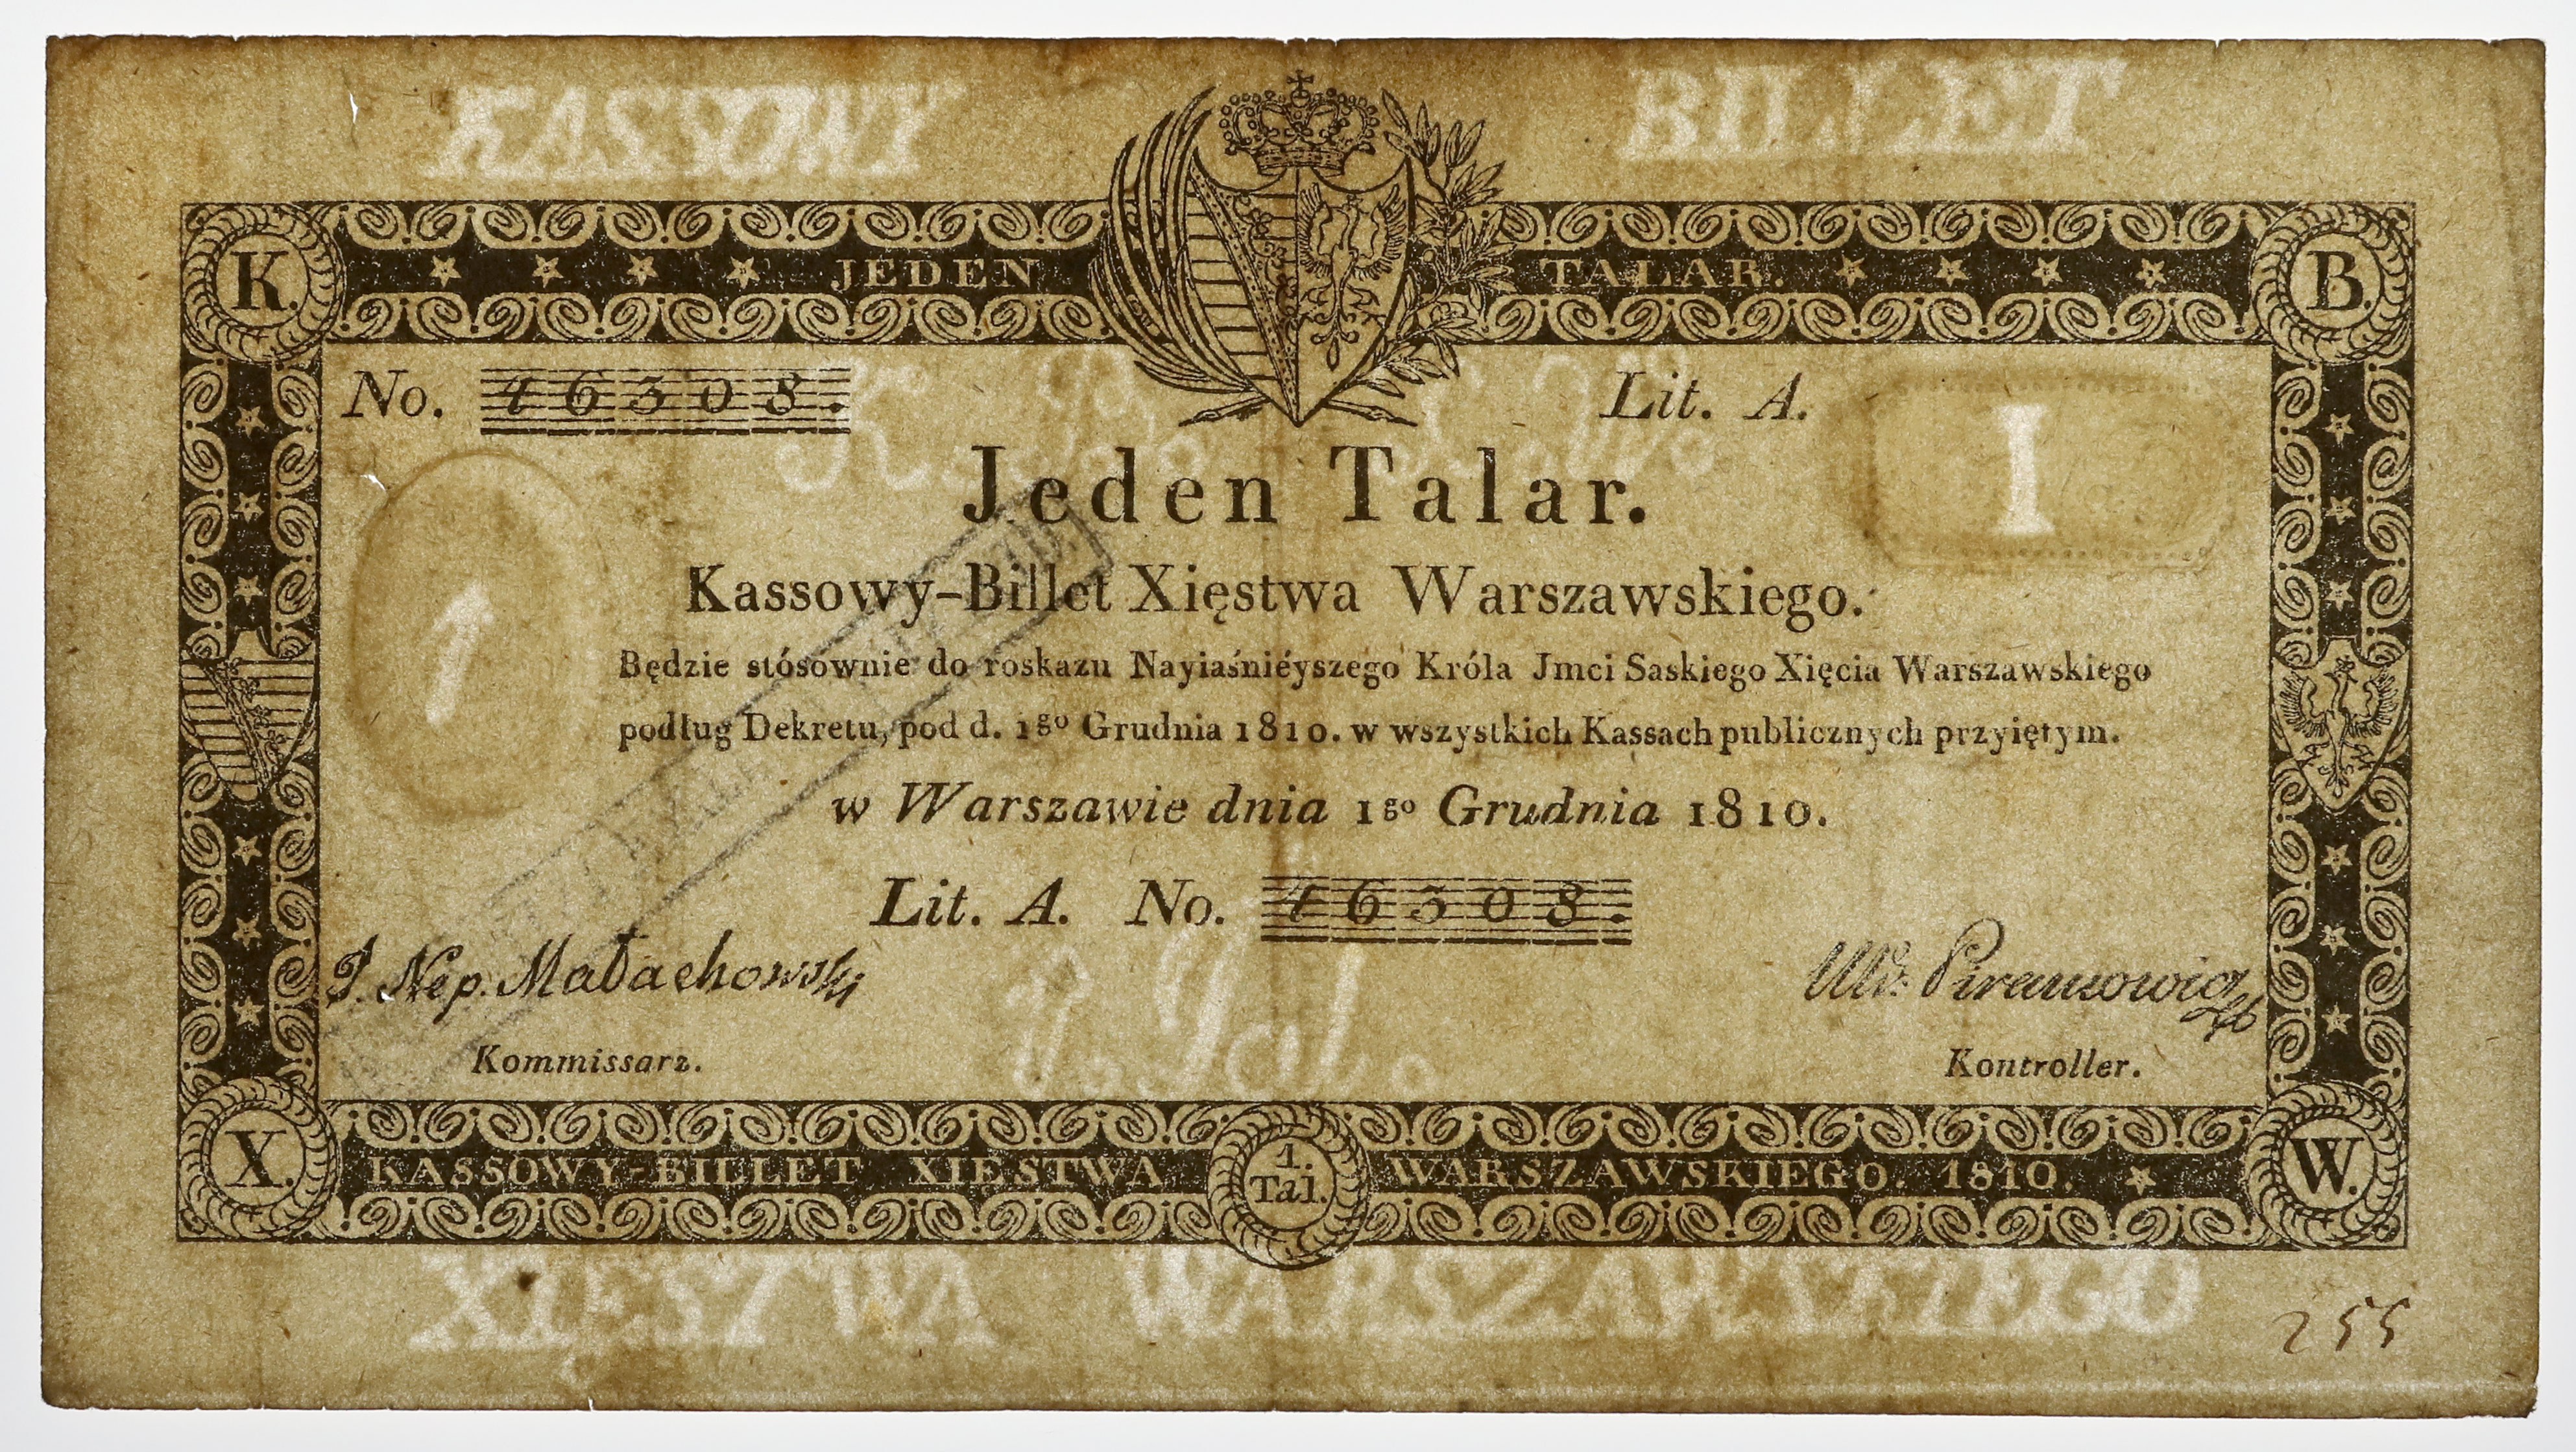 KASSOWY BILLET
K. JEDEN TALAR. B.
No. 46308. Lit. A.
I
Jeden Talar.
1
Kassowy-Billet Xięstwa Warszawskiego.
Będzie stósownie do roskazu Nayiaśniéyszego Króla Jmci Saskiego Xięcia Warszawskiego
podług Dekretu, pod d. 1go Grudnia 1810. w wszystkich Kassach publicznych przyiętym.
w Warszawie dnia 1go Grudnia 1810.
Lit. A. No. 46308.
J. Nep. Małachowski
Kommissarz. Kontroller.
1. Tal.
X. KASSOWY-BILLET XIĘSTWA 1. Tal. WARSZAWSKIEGO. 1810. W.
XIĘSTWA WARSZAWSKIEGO
255